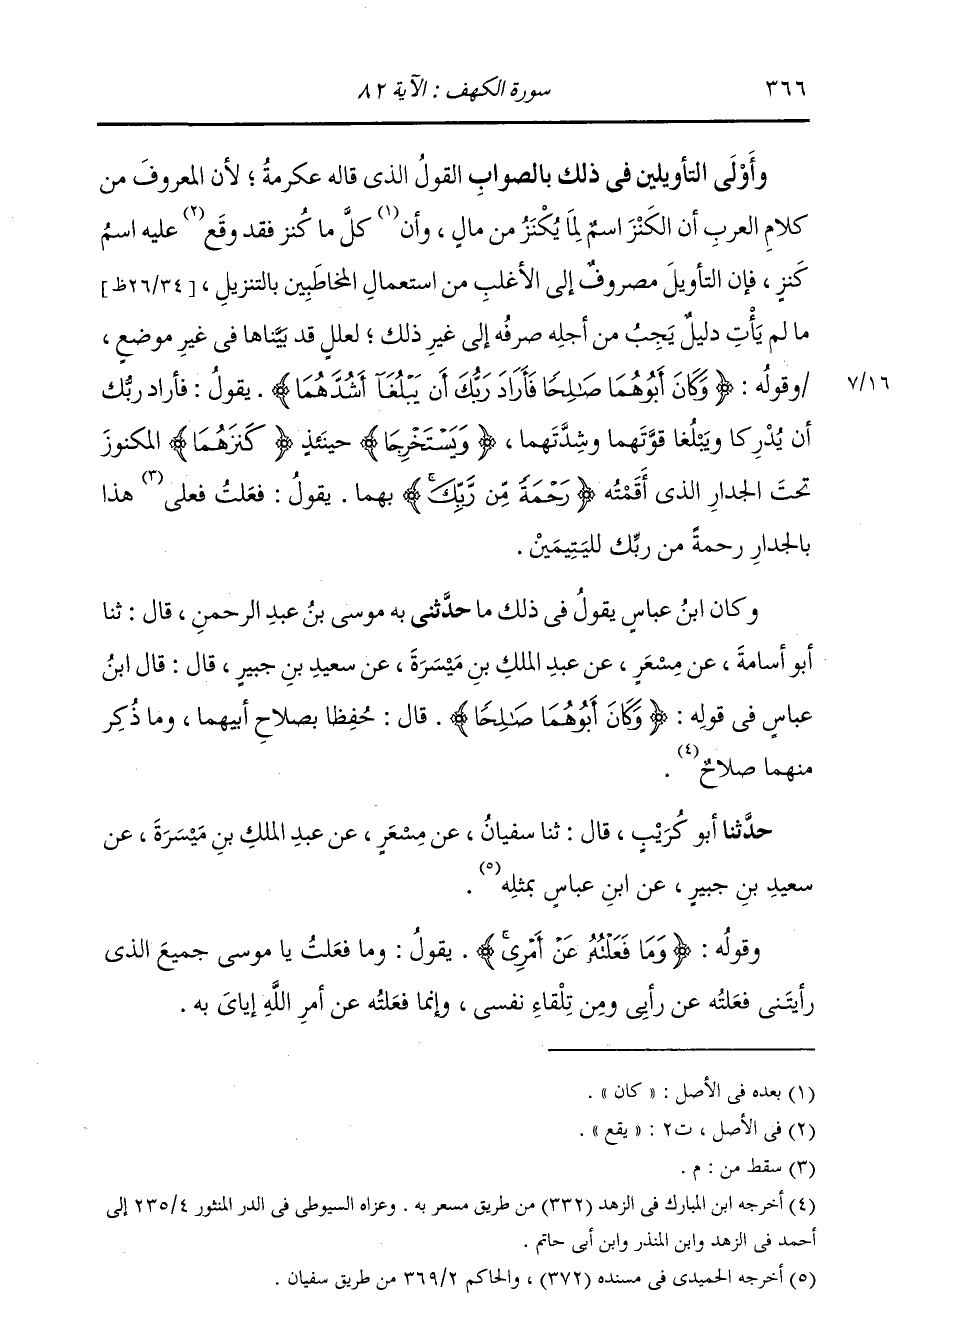 ٣٦٦ سورة الكهف : الآية ٨٢
وأَوْلَى التأويلين فى ذلك بالصوابِ القولُ الذى قاله عكرمةُ ؛ لأن المعروفَ من
كلامِ العربِ أن الكَنْزَ اسمٌ لِمَا يُكْنَزُ من مالٍ ، وأن(١) كلَّ ما كُنز فقد وقَع(٢) عليه اسمُ
كَنزٍ ، فإن التأويلَ مصروفٌ إلى الأغلبِ من استعمالِ المخاطَبِين بالتنزيلِ ، [٢٦/٣٤ظ]
ما لم يَأْتِ دليلٌ يَجِبُ من أجلِه صرفُه إلى غيرِ ذلك ؛ لعللٍ قد بَيَّناها فى غيرِ موضعٍ ،
٧/١٦ /وقولُه : ﴿ وَكَانَ أَبُوهُمَا صَٰلِحًا فَأَرَادَ رَبُّكَ أَن يَبْلُغَآ أَشُدَّهُمَا ﴾ . يقولُ : فأراد ربُّك
أن يُدْرِكا ويَبْلُغا قوَّتَهما وشِدَّتَهما ، ﴿ وَيَسْتَخْرِجَا ﴾ حينَئذٍ ﴿ كَنزَهُمَا ﴾ المكنوزَ
تحتَ الجدارِ الذى أَقَمْتُه ﴿ رَحْمَةً مِّن رَّبِّكَ ۚ ﴾ بهما . يقولُ : فعَلتُ فعلى(٣) هذا
بالجدارِ رحمةً من ربِّك لليَتِيمَيْنِ .
وكان ابنُ عباسٍ يقولُ فى ذلك ما حدَّثنى به موسى بنُ عبدِ الرحمنِ ، قال : ثنا
أبو أسامةَ ، عن مِسْعَرٍ ، عن عبدِ الملكِ بنِ مَيْسَرَةَ ، عن سعيدِ بنِ جبيرٍ ، قال : قال ابنُ
عباسٍ فى قولِه : ﴿ وَكَانَ أَبُوهُمَا صَٰلِحًا ﴾ . قال : حُفِظا بصلاحِ أبيهما ، وما ذُكِر
منهما صلاحٌ(٤) .
حدَّثنا أبو كُرَيْبٍ ، قال : ثنا سفيانُ ، عن مِسْعَرٍ ، عن عبدِ الملكِ بنِ مَيْسَرَةَ ، عن
سعيدِ بنِ جبيرٍ ، عن ابنِ عباسٍ بمثلِه(٥) .
وقولُه : ﴿ وَمَا فَعَلْتُهُۥ عَنْ أَمْرِى ۚ ﴾ . يقولُ : وما فعَلتُ يا موسى جميعَ الذى
رأيتَنى فعَلتُه عن رأيِى ومِن تِلْقاءِ نفسى ، وإنما فعَلتُه عن أمرِ اللَّهِ إياىَ به .
(١) بعده فى الأصل : « كان » .
(٢) فى الأصل ، ت٢ : « يقع » .
(٣) سقط من : م .
(٤) أخرجه ابن المبارك فى الزهد (٣٣٢) من طريق مسعر به . وعزاه السيوطى فى الدر المنثور ٢٣٥/٤ إلى
أحمد فى الزهد وابن المنذر وابن أبى حاتم .
(٥) أخرجه الحميدى فى مسنده (٣٧٢) ، والحاكم ٣٦٩/٢ من طريق سفيان .